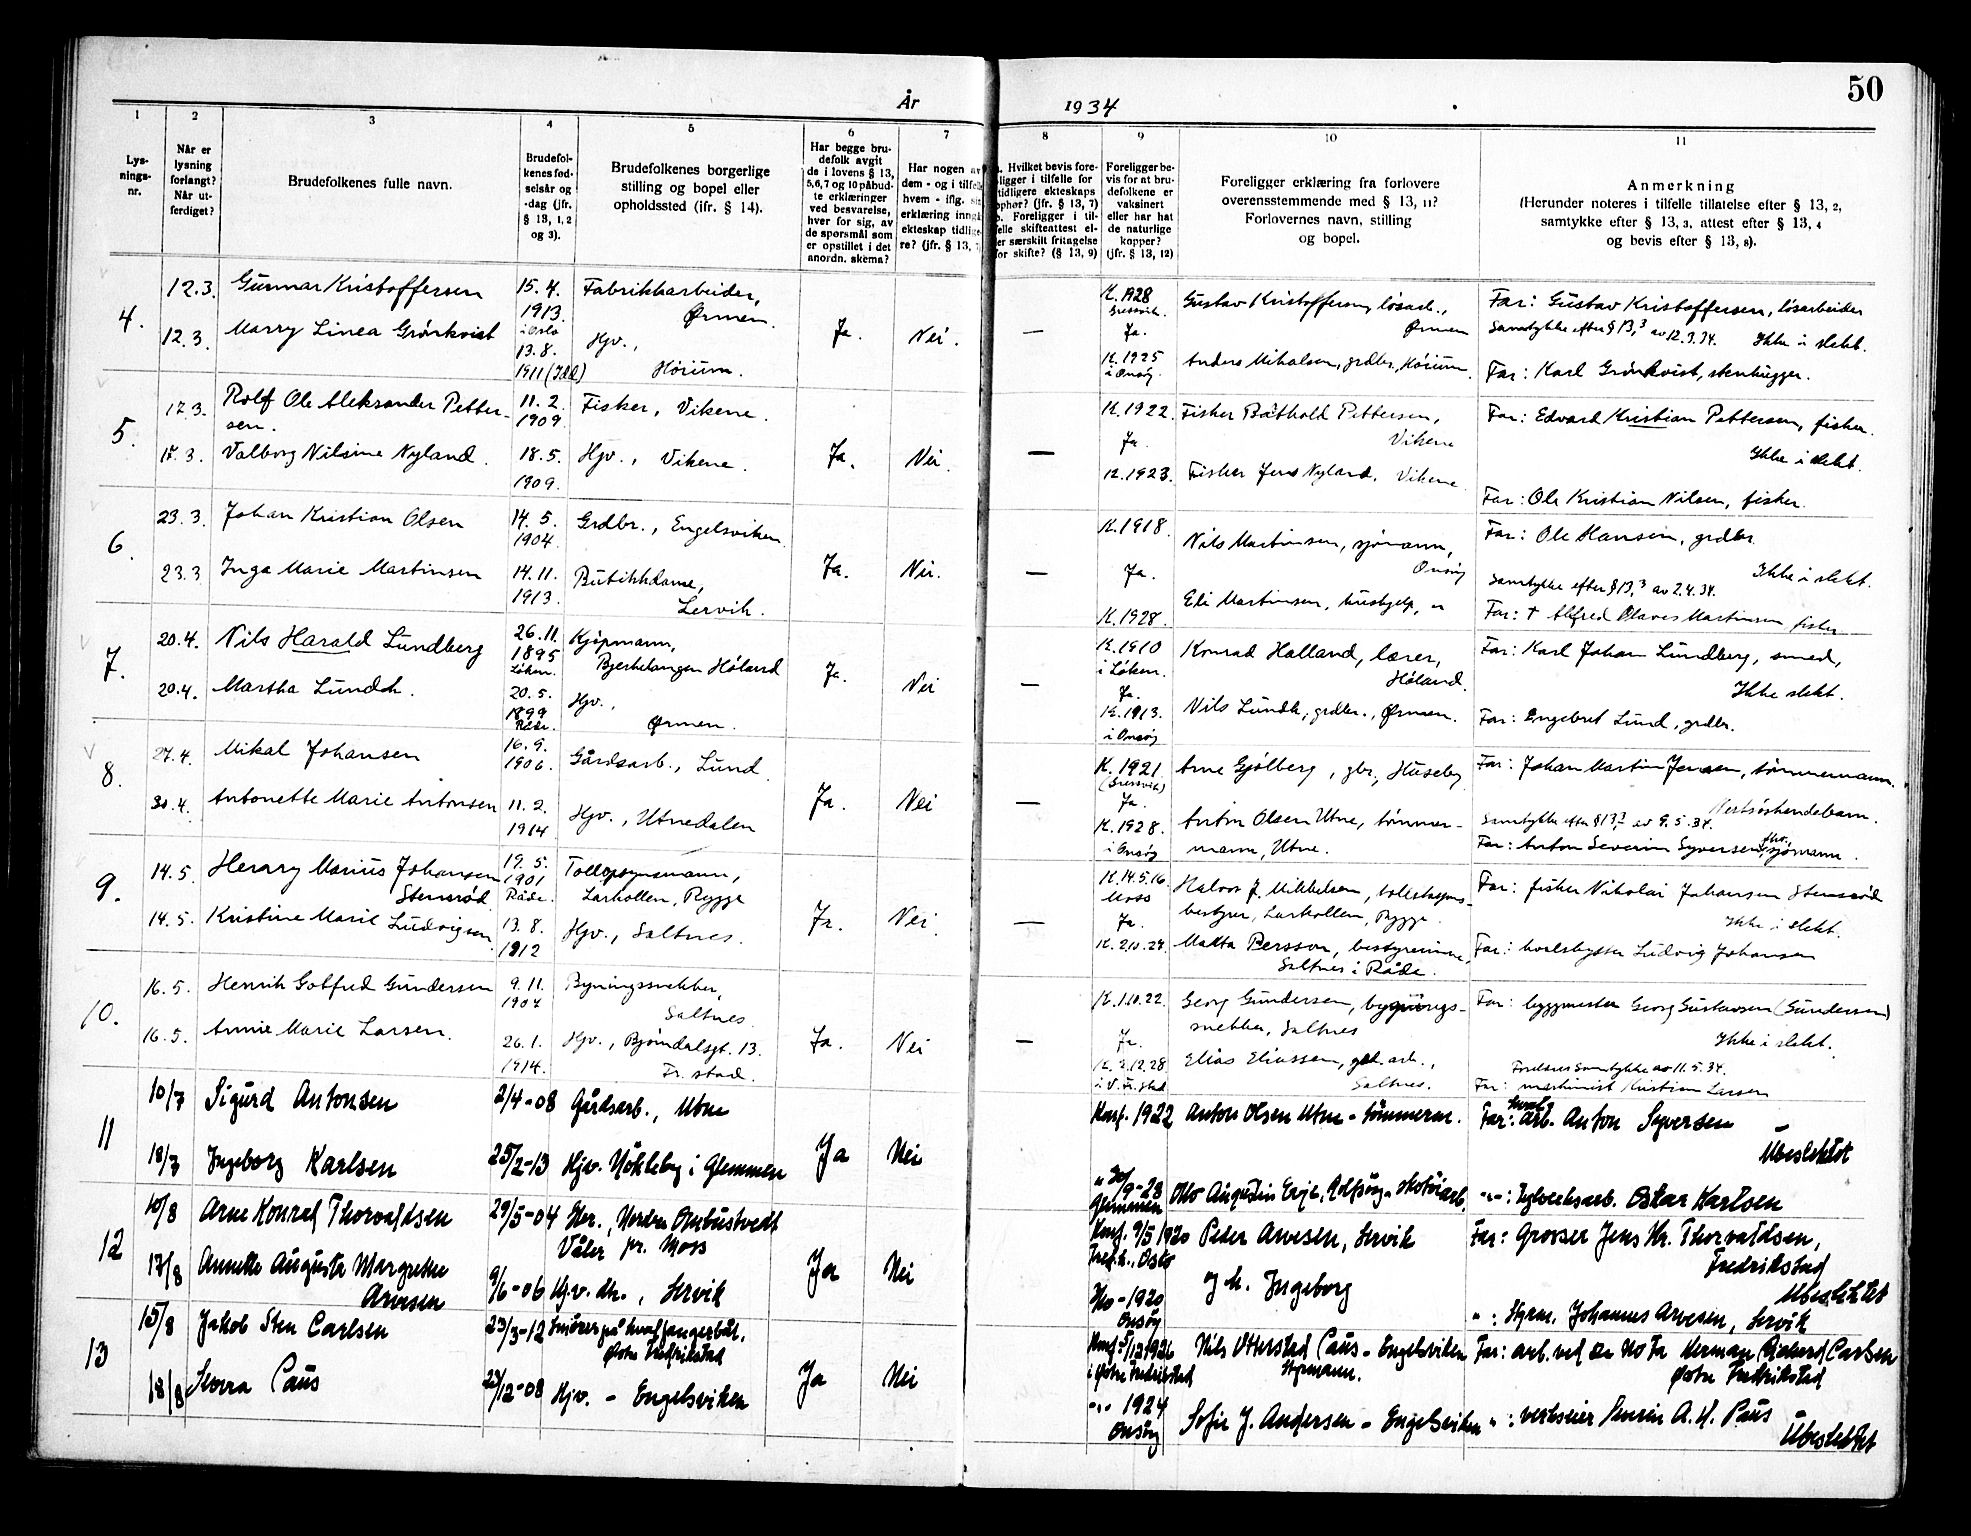 50
År 1934
1 2 3 4 5 6 7 8 9 10 11
Lys-
nings-
nr.
Når er
lysning
forlangt?
Når ut-
ferdiget?
Brudefolkenes fulle navn.
Brudefol-
kenes fød-
selsår og
-dag (jfr.
§ 13, 1, 2
og 3).
Brudefolkenes borgerlige
stilling og bopel eller
opholdssted (ifr. § 14).
Har begge bru-
defolk avgit
de i lovens § 13,
5,6,7 og 10 påbud-
te erklæringer
ved besvarelse,
hver for sig, av
de spørsmål som
er opstillet i det
anordn. skema?
Har nogen av
dem - og i tilfelle
hvem - iflg.
erklæring inngå
ekteskap tidlige-
re? (jfr. § 13,
Hvilket bevis fore-
ligger i tilfelle for
tidligere ekteskaps
ophør? (jfr. § 13, 7)
b. Foreligger i til-
felle skifteattest el-
ler særskilt fritagelse
for skifte? (§ 13, 9)
Foreligger be-
vis for at bru-
defolkene er
vaksinert
eller har hat
de naturlige
kopper?
(jfr. § 13, 12)
Foreligger erklæring fra forlovere
overensstemmende med § 13, 11?
Forlovernes navn, stilling
og bopel.
Anmerkning
(Herunder noteres i tilfelle tillatelse efter § 13, 2,
samtykke efter § 13, 3, attest efter § 13, 4
og bevis efter § 13, 8).
4.
12.3. Gunnar Kristoffersen
15.4.
1913.
i Oslo
Fabrikkarbeider,
Ørmen.
12.3. Marry Linea Grönkvist
13.8.
1911 (Idd)
Hjv.,
Hörium.
Ja. Nei. —
K. 1928
Gressvik.
Ja.
K. 1925
i Onsöy
Gustav Kristoffersen, lösarb.,
Ørmen
Anders Mikalsen, grdbr., Hörium.
Far: Gustav Kristoffersen, lösarbeider
Samtykke efter § 13,3 av 12.3.34. Ikke i slekt.
Far: Karl Grönkvist, stenhugger.
5.
17.3. Rolf Ole Aleksander Petter-
sen.
11.2.
1909
Fisker, Vikene.
17.3. Valborg Nilsine Nyland.
18.5.
1909.
Hjv., Vikene.
Ja. Nei. —
K. 1922.
Ja.
K. 1923.
Fisker Båthold Pettersen,
Vikene
Fisker Jens Nyland, Vikene
Far: Edvard Kristian Pettersen, fisker.
Ikke i slekt.
Far: Ole Kristian Nilsen, fisker.
6.
23.3. Johan Kristian Olsen
14.5.
1904.
Grdbr., Engelsviken.
23.3 Inga Marie Martinsen
14.11.
1913.
Butikkdame,
Lervik.
Ja. Nei. —
K. 1918.
Ja.
K. 1928.
Nils Martinsen, sjömann,
Onsöy
Eli Martinsen, hushjelp,
Far: Ole Hansen, grdbr.
Ikke i slekt.
Samtykke efter § 13,3 av 2.4.34.
Far: † Alfred Olaves Martinsen fisker
7.
20.4. Nils Harald Lundberg
26.11.
1895
Löken.
Kjöpmann,
Bjerkelangen Höland
20.4. Martha Lundh.
20.5.
1899
Råde.
Hjv.,
Ørmen.
Ja. Nei —
K. 1910
i Löken.
Ja.
K. 1913.
i Onsöy
Konrad Halland, lærer,
Höland.
Nils Lundh, grdbr., Ørmen.
Far: Karl Johan Lundberg, smed,
Ikke slekt.
Far: Engebret Lund, grdbr.
8.
27.4. Mikal Johansen
16.9.
1906.
Gårdsarb., Lund.
30.4. Antonette Marie Antonsen
11.2.
1914
Hjv., Utnedalen
Ja. Nei —
K. 1921
(Gressvik)
Ja.
K. 1928.
i Onsöy
Arne Gjölberg, gbr., Huseby
Anton Olsen Utne, tömmer-
mann, Utne.
Far: Johan Martin Jensen, tömmermann.
Nestsöskendebarn.
Samtykke efter § 13,3 av 9.5.34.
Far: Anton Severin Syversen, sjömann.
9.
14.5. Herary Marius Johansen
Stensröd
19.5.
1901
Råde.
Tollopsynsmann,
Larkollen, Rygge
14.5. Kristine Marie Ludvigsen
13.8.
1912
Hjv., Saltnes.
Ja. Nei. —
K. 14.5.16
Moss
Ja.
K. 2.10.27.
Halvor J. Mikkelsen, tollstasjons-
bestyrer, Larkollen, Rygge.
Makta Persson, bestyrerinne,
Saltnes i Råde.
Far: fisker Nikolai Johansen Stensröd
Ikke i slekt.
Far: Ludvig Johansen
10.
16.5. Henrik Gotfred Gundersen
9.11.
1907
Bygningssnekker,
Saltnes.
16.5. Annie Marie Larsen.
26.1.
1914.
Hjv., Bjørndalsgt. 13.
Fr.stad.
Ja. Nei —
K. 1.10.22.
Ja.
K. 2.12.28
i V. Fr.stad
Georg Gundersen, bygnings-
snekker, Saltnes
Elias Eliassen, arb.,
Saltnes.
Far: byggmester Georg Gustavsen (Gundersen)
Ikke i slekt.
Foreldres samtykke av 11.5.34.
Far: maskinist Kristian Larsen
11
10/7 Sigurd Antonsen 2/4-08 Gårdsarb., Utne
18/7 Ingeborg Karlsen 25/2-13 Hjv. Nökleby i Glemmen
Ja Nei
Konf. 1922 Anton Olsen Utne - tömmerm.
" 30/9-28
Glemmen
Otto Augustin Erik, Rolfsöy - skotöiarb.
Far: arb. Anton Syversen
Ubeslektet
-"-: Teglverksarb. Oskar Karlsen
12
10/8 Arne Konrad Thorvaldsen 29/5-04 Gbr., Nordre Ombustvedt
Våler pr. Moss
17/8 Annette Augusta Margrethe
Arvesen
9/6-06 Hjv. dtr., Lervik
Ja Nei
Konf. 9/5 1920
Oslo
1920
Onsöy
Peder Arvesen, Lervik
og M. Ingeborg
Far: Grosser Jens Kr. Thorvaldsen,
Fredrikstad
Ubeslektet
" : Styrm. Johannes Arvesen, Lervik
13
15/8 Jakob Sten Carlsen 23/3-12 Smörer på hvalfangerbåt.
Østre Fredrikstad
18/8 Paus 23/12-08 Hjv. - Engelsviken
Ja Nei
Konf. 5/12 1926
i Østre Fredrikstad
-"- 1924
Onsöy
Nils Otterstad Paus - Engelsviken
Styrmann.
Sofie J. Andersen - Engelsviken
Far: arb. ved De No Fa Herman Rikard Carlsen
Østre Fredrikstad
" : verkseier Severin A. H. Paus
Ubeslektet